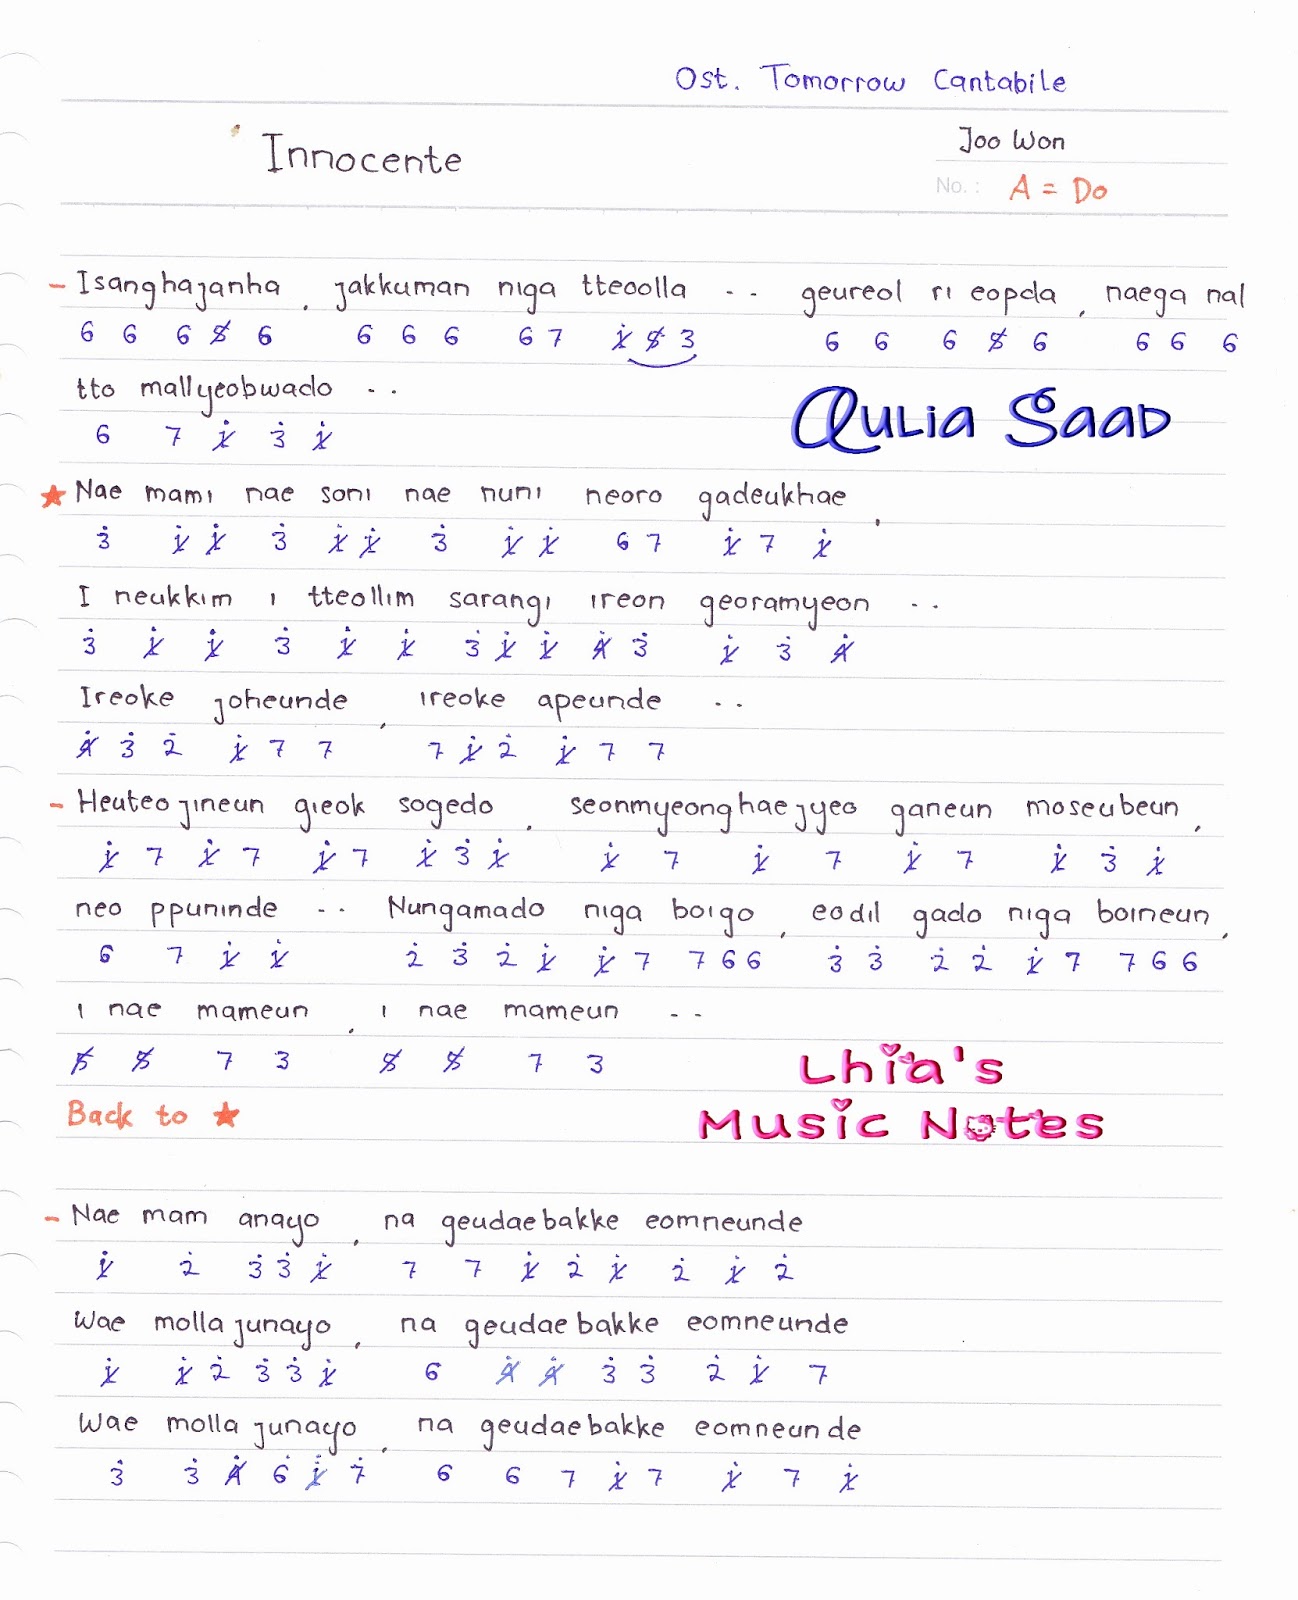 Ost. Tomorrow Cantabile
Innocente
Joo Won
No. : A = Do
- Isanghajanha, jakkuman niga tteoolla .. geureol ri eopda, naega nal
6 6 6 5̸ 6 6 6 6 6 7 1̸̇ 5̸ 3 6 6 6 5̸ 6 6 6 6
tto mallyeobwado ..
6 7 1̸̇ 3̇ 1̸̇
Qulia Saad
★ Nae mami nae soni nae nuni neoro gadeukhae,
3̇ 1̸̇ 1̸̇ 3̇ 1̸̇ 1̸̇ 3̇ 1̸̇ 1̸̇ 6 7 1̸̇ 7 1̸̇
I neukkim i tteollim sarangi ireon georamyeon ..
3̇ 1̸̇ 1̸̇ 3̇ 1̸̇ 1̸̇ 3̇ 1̸̇ 1̸̇ 4̸̇ 3̇ 1̸̇ 3̇ 4̸̇
Ireoke joheunde, ireoke apeunde ..
4̸̇ 3̇ 2̇ 1̸̇ 7 7 7 1̸̇ 2̇ 1̸̇ 7 7
- Heuteojineun gieok sogedo, seonmyeonghaejyeo ganeun moseubeun,
1̸̇ 7 1̸̇ 7 1̸̇ 7 1̸̇ 3̇ 1̸̇ 1̸̇ 7 1̸̇ 7 1̸̇ 7 1̸̇ 3̇ 1̸̇
neo ppuninde .. Nungamado niga boigo, eodil gado niga boineun,
6 7 1̸̇ 1̸̇ 2̇ 3̇ 2̇ 1̸̇ 1̸̇ 7 7 6 6 3̇ 3̇ 2̇ 2̇ 1̸̇ 7 7 6 6
i nae mameun, i nae mameun ..
5̸ 5̸ 7 3 5̸ 5̸ 7 3
Back to ★
Lhia's
Music Notes
- Nae mam anayo, na geudaebakke eomneunde
1̸̇ 2̇ 3̇ 3̇ 1̸̇ 7 7 1̸̇ 2̇ 1̸̇ 2̇ 1̸̇ 2̇
Wae molla junayo, na geudaebakke eomneunde
1̸̇ 1̸̇ 2̇ 3̇ 3̇ 1̸̇ 6 4̸̇ 4̸̇ 3̇ 3̇ 2̇ 1̸̇ 7
Wae molla junayo, na geudaebakke eomneunde
3̇ 3̇ 4̸̇ 6̇ 1̸̇ 7̇ 6 6 7 1̸̇ 7 1̸̇ 7 1̸̇